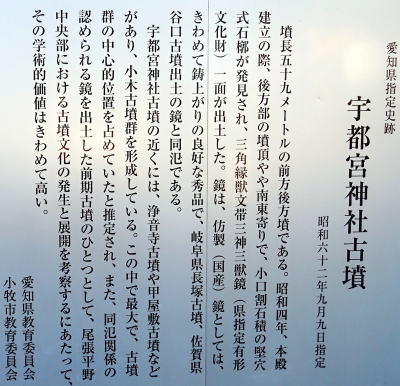 愛知県指定史跡
宇都宮神社古墳
昭和六十二年九月九日指定
墳長五十九メートルの前方後方墳である。昭和四年、本殿
建立の際、後方部の墳頂やや南東寄りで、小口割石積の竪穴
式石槨が発見され、三角縁獣文帯三神三獣鏡（県指定有形
文化財）一面が出土した。鏡は、仿製（国産）鏡としては、
きわめて鋳上がりの良好な秀品で、岐阜県長塚古墳、佐賀県
谷口古墳出土の鏡と同笵である。
宇都宮神社古墳の近くには、浄音寺古墳や甲屋敷古墳など
があり、小木古墳群を形成している。この中で最大で、古墳
群の中心的位置を占めていたと推定され、また、同笵関係の
認められる鏡を出土した前期古墳のひとつとして、尾張平野
中央部における古墳文化の発生と展開を考察するにあたって、
その学術的価値はきわめて高い。
愛知県教育委員会
小牧市教育委員会